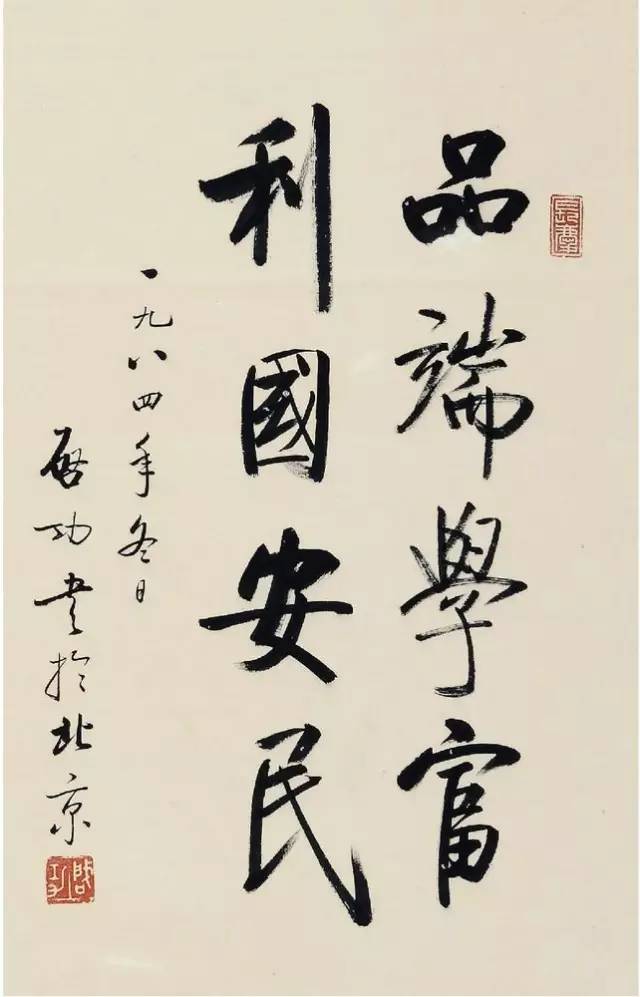 品端學富
利國安民
一九八四年冬日
啟功書於北京
啟功